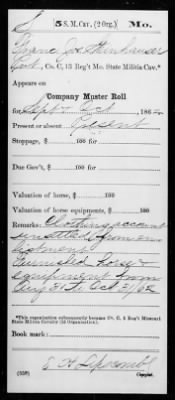 S | 5 S. M. Cav. (2 Org.) | Mo.
Franc Joe Steinhauser
Pvt., Co. C, 13 Reg't Mo. State Militia Cav.*
Appears on
Company Muster Roll
for Sept & Oct, 1862.
Present or absent Present
Stoppage, $ 100 for
Due Gov't, $ 100 for
Valuation of horse, $ 100
Valuation of horse equipments, $ 100
Remarks: Clothing account
from en-
rolment
Furnished horse &
equipment from
Aug 31 to Oct 31/62
*This organization subsequently became Co. C, 5 Reg't Missouri
State Militia Cavalry (2d Organization).
Book mark:
E H Lipscomb
Copyist.